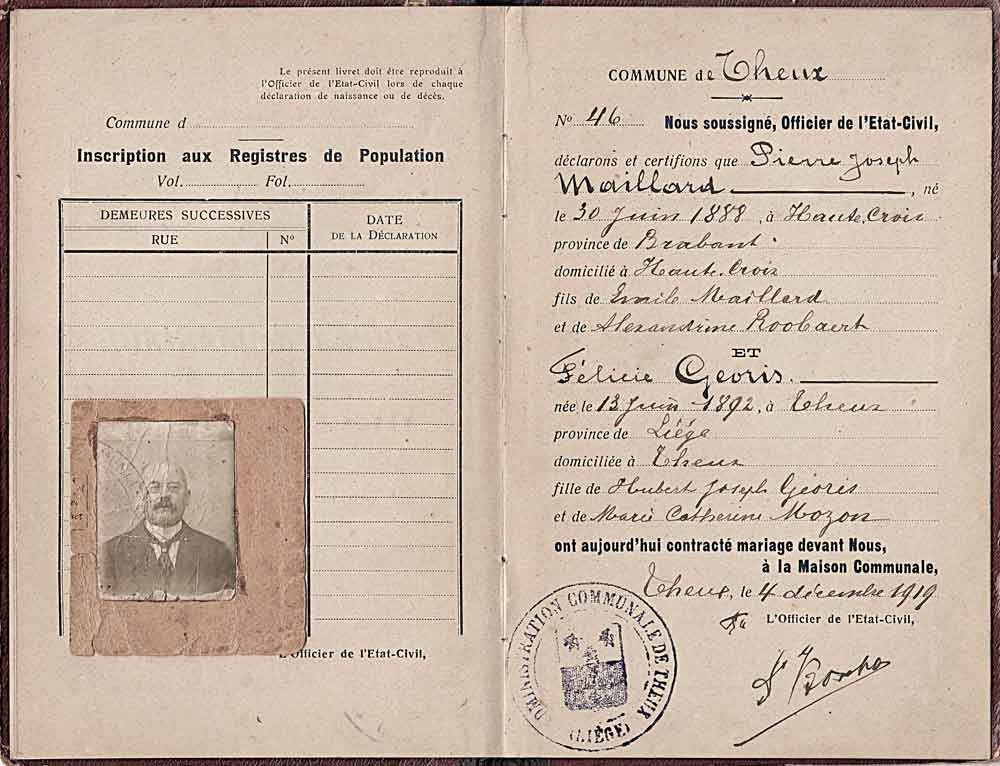 Le présent livret doit être reproduit à
l'Officier de l'Etat-Civil lors de chaque
déclaration de naissance ou de décès.
Commune d
Inscription aux Registres de Population
Vol. Fol.
DEMEURES SUCCESSIVES
DATE
DE LA DÉCLARATION
RUE
N°
L'Officier de l'Etat-Civil,
COMMUNE de Theux
N° 46 Nous soussigné, Officier de l'Etat-Civil,
déclarons et certifions que Pierre Joseph
Maillard, né
le 30 Juin 1888, à Haute-Croix
province de Brabant.
domicilié à Haute-Croix
fils de Emile Maillard
et de Alexandrine Roobaert
ET
Félicie Georis.
née le 13 Juin 1892, à Theux
province de Liége
domiciliée à Theux
fille de Hubert Joseph Georis
et de Marie Catherine Mozon
ont aujourd'hui contracté mariage devant Nous,
à la Maison Communale,
Theux, le 4 décembre 1919
L'Officier de l'Etat-Civil,
ADMINISTRATION COMMUNALE DE THEUX
(LIÈGE)